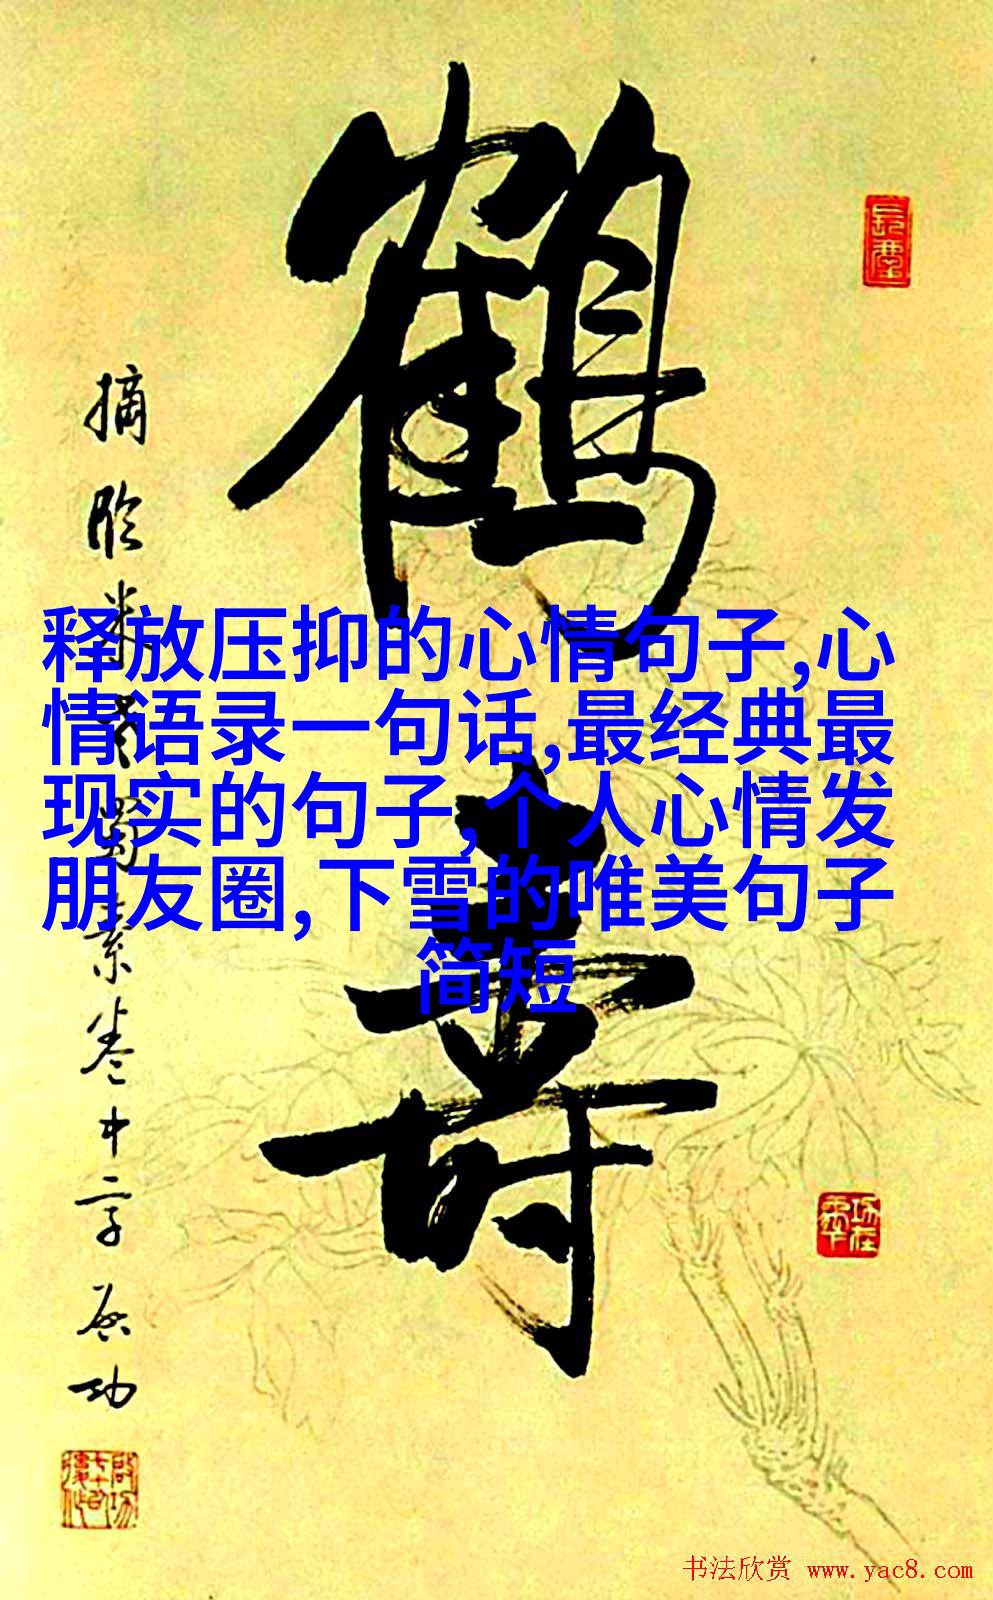 鹤寿
摘临米书蜀素卷中字启功
释放压抑的心情句子,心
情语录一句话,最经典最
现实的句子,个人心情发
朋友圈,下雪的唯美句子
简短
书法欣赏 www.yac8.com